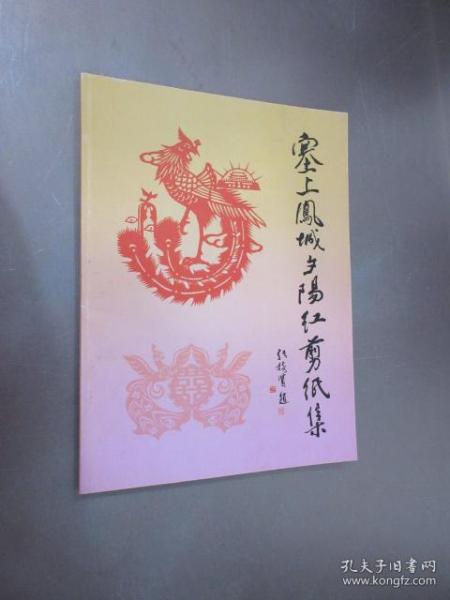 塞上鳳城夕陽红剪纸集
題
孔夫子旧书网
www.kongfz.com